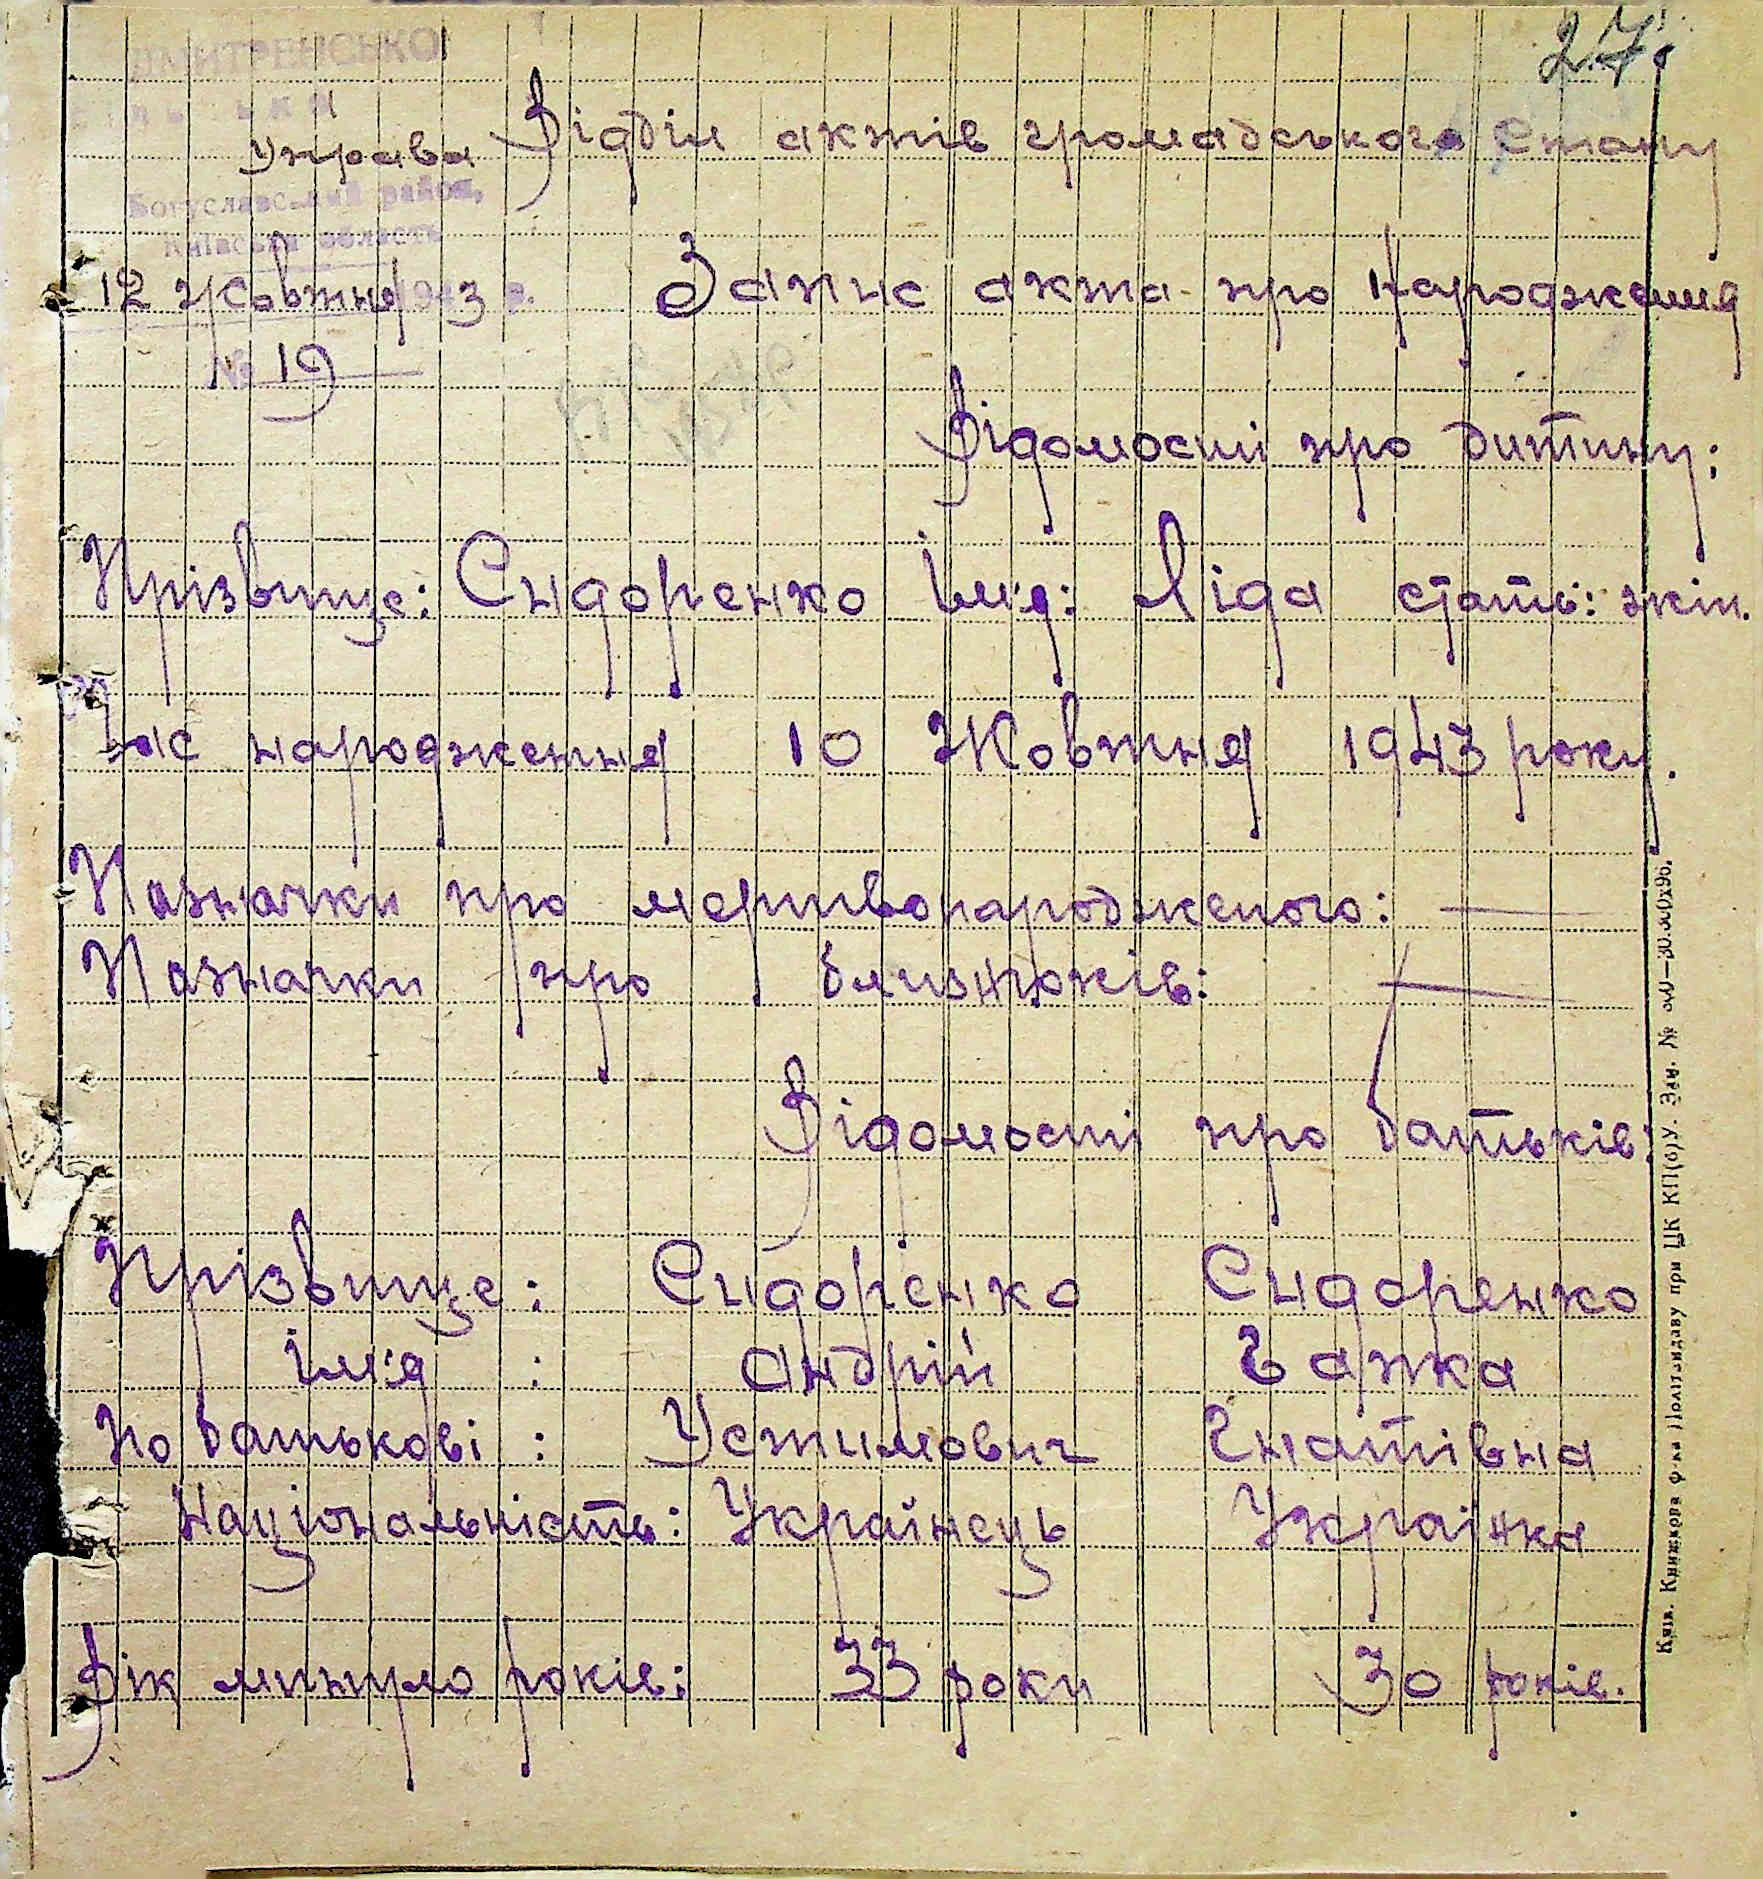 27.
Управа Відділ актів громадського стану
Богуславський район,
Київська область
12 Жовтня 1943 р. Запис акта про народження
№ 19
Відомості про дитину:
Прізвище: Сидоренко Ім'я: Ліда стать: жін.
Час народження 10 Жовтня 1943 року.
Позначки про мертвонародженого: —
Позначки про близнюків: —
Відомості про батьків:
Прізвище: Сидоренко Сидоренко
Ім'я : Андрій Гапка
По батькові : Устимович Гнатівна
Національність: Українець Українка
Вік минуло років: 33 роки 30 років.
Київ. Книжкова ф-ка Політвидаву при ЦК КП(б)У. Зам. №